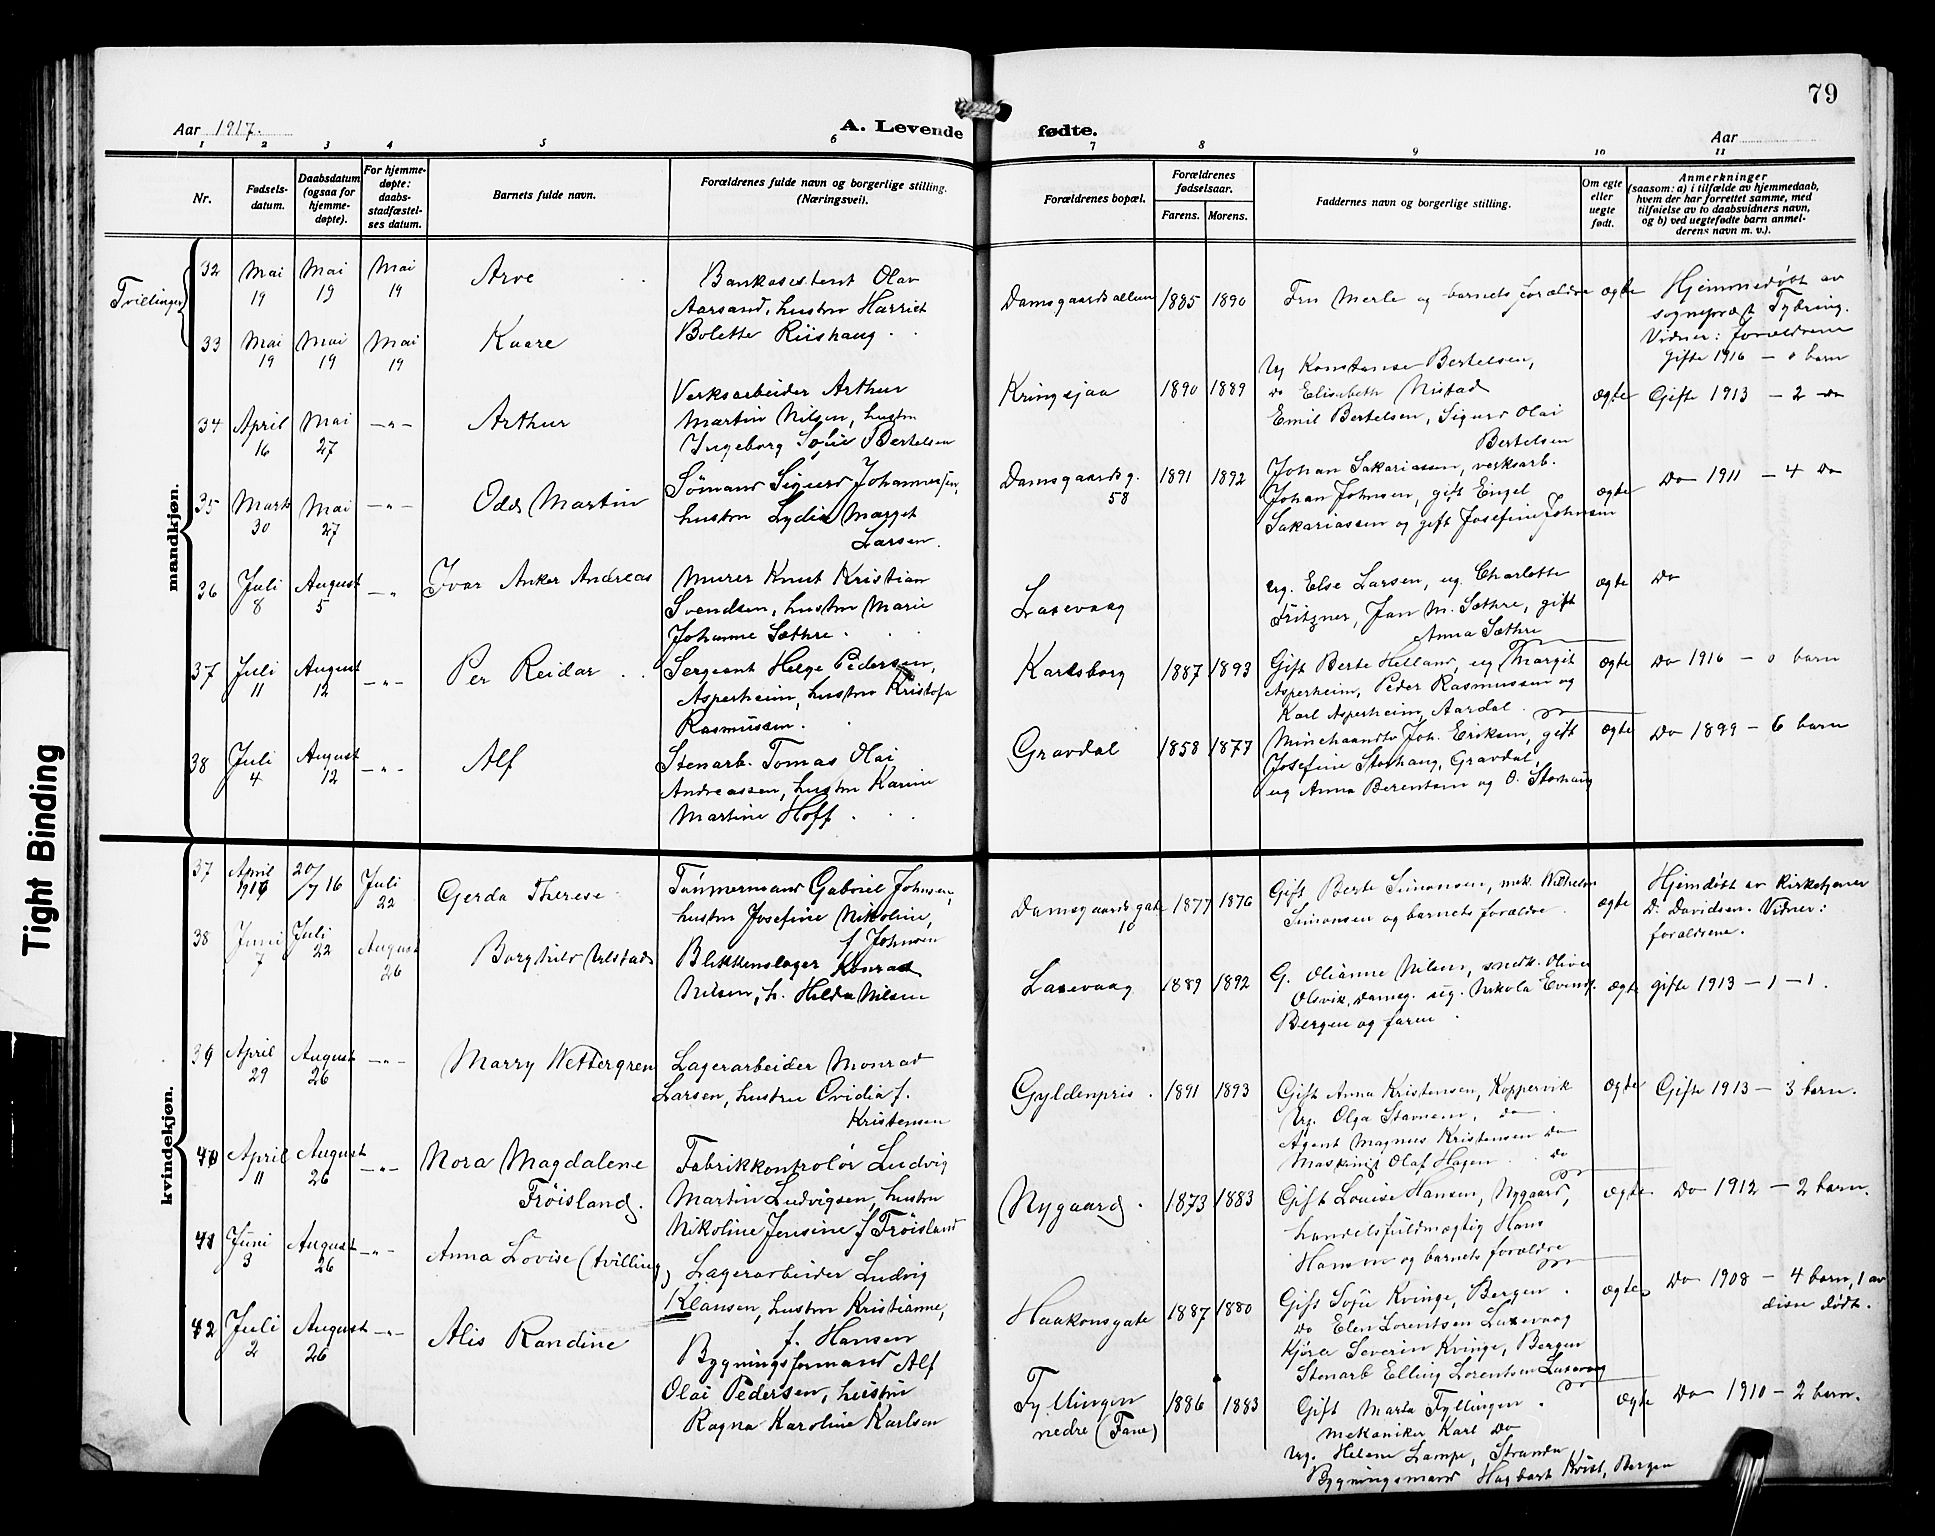 79
Aar 1917.
A. Levende fødte.
Aar
1 2 3 4 5 6 7 8 9 10 11
Nr.
Fødsels-
datum.
Daabsdatum
(ogsaa for
hjemme-
døpte).
For hjemme-
døpte:
daabs-
stadfæstel-
ses datum.
Barnets fulde navn.
Forældrenes fulde navn og borgerlige stilling.
(Næringsvei).
Forældrenes bopæl.
Forældrenes
fødselsaar.
Farens. Morens.
Faddernes navn og borgerlige stilling.
Om egte
eller
uegte
født.
Anmerkninger
(saasom: a) i tilfælde av hjemmedaab,
hvem der har forrettet samme, med
tilføielse av to daabsvidners navn,
og b) ved uegtefødte barn anmel-
derens navn m. v.).
Tight Binding
mandkjøn.
Tvillinger
32 Mai 19 Mai 19 Mai 19 Arve
Bankassistent Olav
Aarsand, hustru Harriet
Bolette Riishaug
Damsgaardsalleen 1885 1890
Fru Merle og barnets forældre
ægte
Hjemmedøbt av
sogneprest Tybring.
Vidner: forældrene
gifte 1916 – 0 barn
33 Mai 19 Mai 19 Mai 19 Kaare
34 April 16 Mai 27 –"– Arthur
Verksarbeider Arthur
Martin Nilsen, hustru
Ingeborg Sofie Bertelsen
Kringsjaa 1890 1889
Ug Konstanse Bertelsen,
do Elisabeth Nistad
Emil Bertelsen, Sigurd Olai
Bertelsen
ægte
Gifte 1913 – 2 do
35 Marts 30 Mai 27 –"– Odd Martin
Sømand Sigurd Johannessen,
hustru Lydia Marget
Larsen.
Damsgaardsg. 58 1891 1892
Johan Sakariassen, verksarb.
Johan Johnsen, gift Engel
Sakariassen og gift Josefine Johnsen
ægte
Do 1911 – 4 Do
36 Juli 8 August 5 –"– Ivar Anker Andreas
Murer Knut Kristian
Svendsen, hustru Marie
Johanne Sæthre.
Laxevaag
Ug. Else Larsen, ug. Charlotte
Fritzner, Jan M. Sæthre, gift
Anna Sæthre
ægte
Do
37 Juli 11 August 12 –"– Per Reidar
Sergeant Helge Pedersen,
Asperheim, hustru Kristofa
Rasmussen.
Karlsborg 1887 1893
Gift Berte Helland, ug Margit
Asperheim, Peder Rasmussen og
Karl Asperheim, Aardal.
ægte
Do 1916 – 0 barn
38 Juli 4 August 12 –"– Alf
Stenarb. Tomas Olai
Andreassen, hustru Karine
Martine Hoff.
Gravdal 1858 1877
Minehaandv Joh. Eriksen, gift
Josefine Storhaug, Gravdal,
ug Anna Berentsen og O. Storhaug
ægte
Do 1899 – 6 barn
kvindekjøn.
37 April 1916 20/7 16 Juli 22 Gerda Therese
Tømmermand Gabriel Johnsen,
hustru Josefine Nikoline,
f Johnsen
Damsgaardsgate 10 1877 1876
Gift Berte Simonsen, mek. Wilhelm
Simonsen og barnets forældre.
ægte
Hjemdøbt av kirketjener
D. Davidsen. Vidner:
forældrene.
38 Juni 7 Juli 22 August 26 Borghild Ulstad
Blikkenslager Konrad
Nilsen, h. Hilda Nilsen
Laxevaag 1889 1892
G. Olianne Nilsen, snedk. Oliver
Olsvik, Damsg. ug. Nikola Evind.
Bergen og faren.
ægte
gifte 1913 – 1 – 1.
39 April 29 August 26 –"– Marry Wettergren
Lagerarbeider Monrad
Larsen, hustru Ovidia f.
Kristensen
Gyldenpris. 1891 1893
Gift Anna Kristensen, Koppervik
Ug. Olga Stavnem, do
Agent Magnus Kristensen do
Maskinist Olaf Hagen do
ægte
Gifte 1913 – 3 barn.
40 April 11 August 26 –"– Nora Magdalene
Frøisland.
Fabrikkontrolør Ludvig
Martin Ludvigsen, hustru
Nikoline Jensine f Frøisland
Nygaard. 1873 1883
Gift Louise Hansen, Nygaard,
handelsfuldmægtig Hans
Hansen og barnets forældre
ægte
Do 1912 – 2 barn.
41 Juni 3 August 26 –"– Anna Lovise (tvilling)
Lagerarbeider Ludvig
Klausen, hustru Kristianne,
f. Hansen
Haakonsgate 1887 1880
Gift Sofie Kvinge, Bergen.
do Elen Lorentsen Laxevaag
Kjører Severin Kvinge, Bergen
Stenarb Elling Lorentsen Laxevaag
ægte
Do 1908 – 4 barn, 1 av
disse dødt.
42 Juli 2 August 26 –"– Alis Randine
Bygningsformand Alf
Olai Pedersen, hustru
Ragna Karoline Karlsen
Fyllingen
nedre (Fane) 1886 1883
Gift Marta Fyllingen.
Mekaniker Karl Do
Ug. Helene Lampe, Stranda
Bygningsmand Hagbart Kvist, Bergen
ægte
Do 1910 – 2 barn.